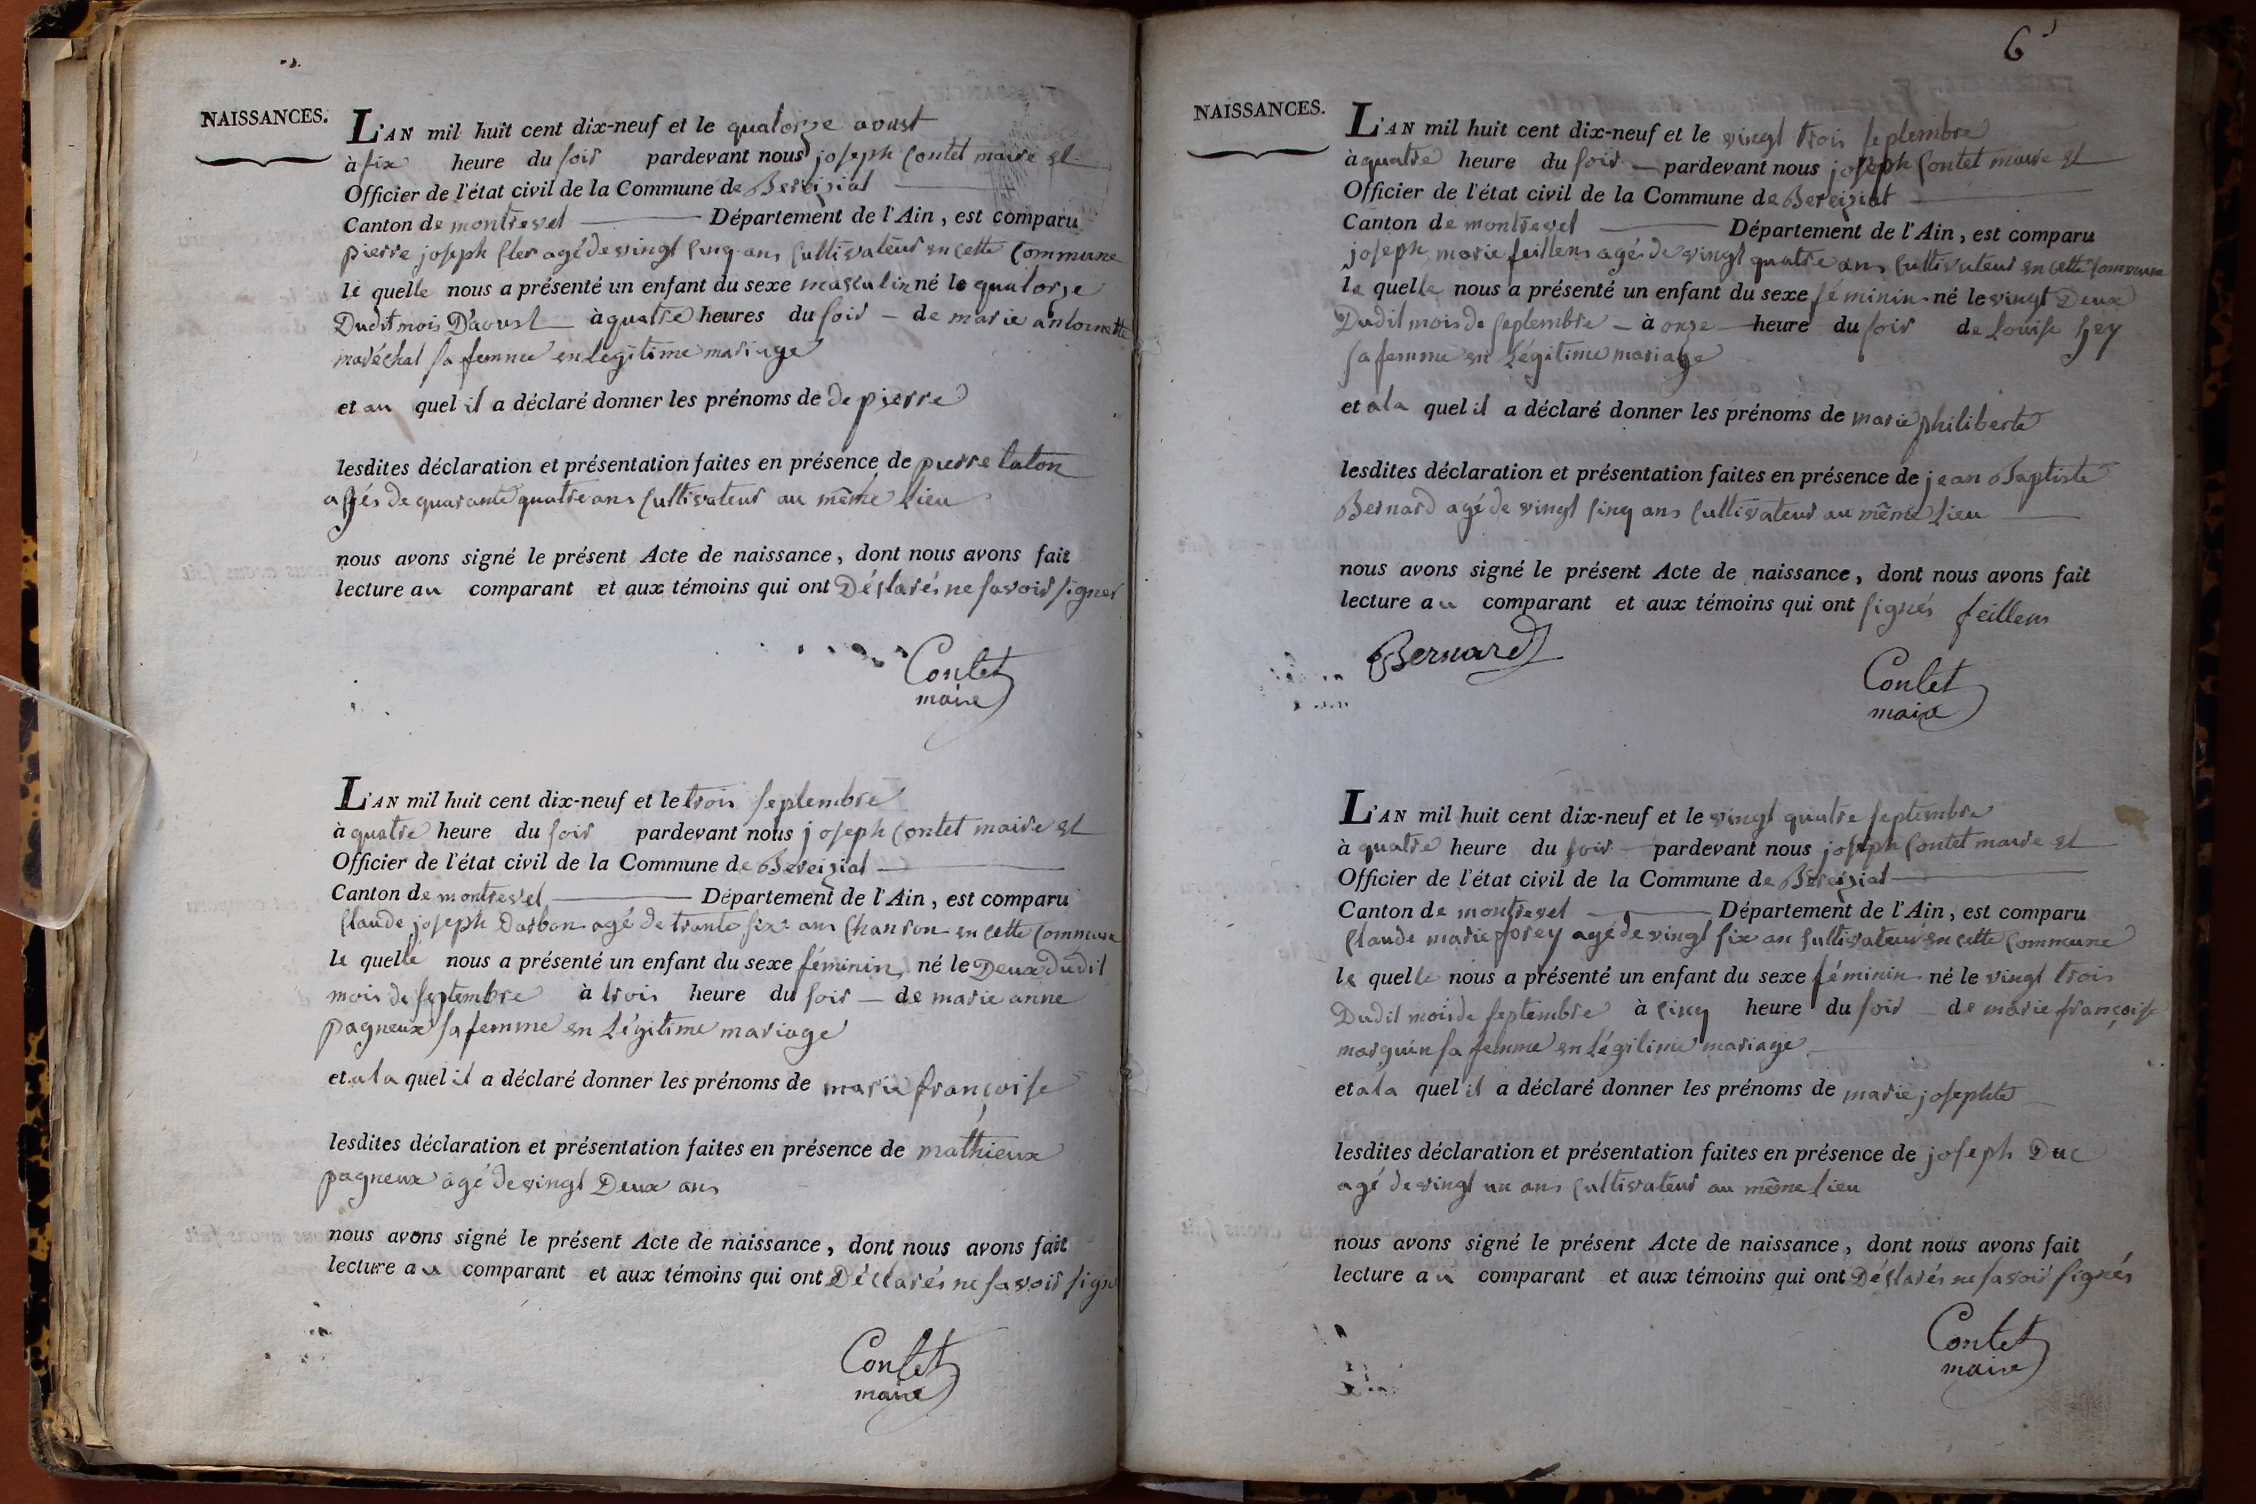 NAISSANCES.
L'AN mil huit cent dix-neuf et le quatorze aoust
à six heure du soir pardevant nous joseph Contet maire et
Officier de l'état civil de la Commune de Bereiziat
Canton de montrevel Département de l'Ain, est comparu
pierre joseph agé de vingt cinq ans Cultivateur en cette Commune
le quelle nous a présenté un enfant du sexe masculin né le quatorze
Dudit mois D'aoust à quatre heures du soir - de marie antoinette
maréchal sa femme en legitime mariage
et au quel il a déclaré donner les prénoms de de pierre
lesdites déclaration et présentation faites en présence de pierre
agés de quarante quatre ans Cultivateur au même Lieu
nous avons signé le présent Acte de naissance, dont nous avons fait
lecture au comparant et aux témoins qui ont Déclarés ne savoir signer
Contet
maire
L'AN mil huit cent dix-neuf et le trois septembre
à quatre heure du soir pardevant nous joseph Contet maire et
Officier de l'état civil de la Commune de Bereiziat
Canton de montrevel Département de l'Ain, est comparu
Claude joseph Darbon agé de trante six ans Charron en cette Commune
le quelle nous a présenté un enfant du sexe féminin né le Deux dudit
mois de septembre à trois heure du soir - de marie anne
pagneux sa femme en Légitime mariage
et a la quel il a déclaré donner les prénoms de marie françoise
lesdites déclaration et présentation faites en présence de mathieux
pagneux agé de vingt Deux ans
nous avons signé le présent Acte de naissance, dont nous avons fait
lecture au comparant et aux témoins qui ont Déclarés ne savoir signe
Contet
maire
6
NAISSANCES.
L'AN mil huit cent dix-neuf et le vingt trois septembre
à quatre heure du soir - pardevant nous joseph Contet maire et
Officier de l'état civil de la Commune de Bereiziat
Canton de montrevel Département de l'Ain, est comparu
joseph marie feillens agés de vingt quatre ans Cultivateur en cette Commune
le quelle nous a présenté un enfant du sexe féminin né le vingt Deux
Dudit mois de septembre - à onze heure du soir de Louise
sa femme en Légitime mariage
et a la quel il a déclaré donner les prénoms de marie philiberte
lesdites déclaration et présentation faites en présence de jean Baptiste
Bernard agé de vingt cinq ans Cultivateur au même Lieu
nous avons signé le présent Acte de naissance, dont nous avons fait
lecture au comparant et aux témoins qui ont signés feillens
Bernard
Contet
maire
L'AN mil huit cent dix-neuf et le vingt quatre septembre
à quatre heure du soir - pardevant nous joseph Contet maire et
Officier de l'état civil de la Commune de Bereiziat
Canton de montrevel Département de l'Ain, est comparu
Claude marie agé de vingt six an Cultivateur en cette Commune
le quelle nous a présenté un enfant du sexe féminin né le vingt trois
Dudit mois de septembre à cinq heure du soir - de marie françoise
marguin sa femme en Légitime mariage
et a la quel il a déclaré donner les prénoms de marie josephte
lesdites déclaration et présentation faites en présence de joseph Duc
agé de vingt un ans Cultivateur au même Lieu
nous avons signé le présent Acte de naissance, dont nous avons fait
lecture au comparant et aux témoins qui ont Déclarés ne savoir signés
Contet
maire